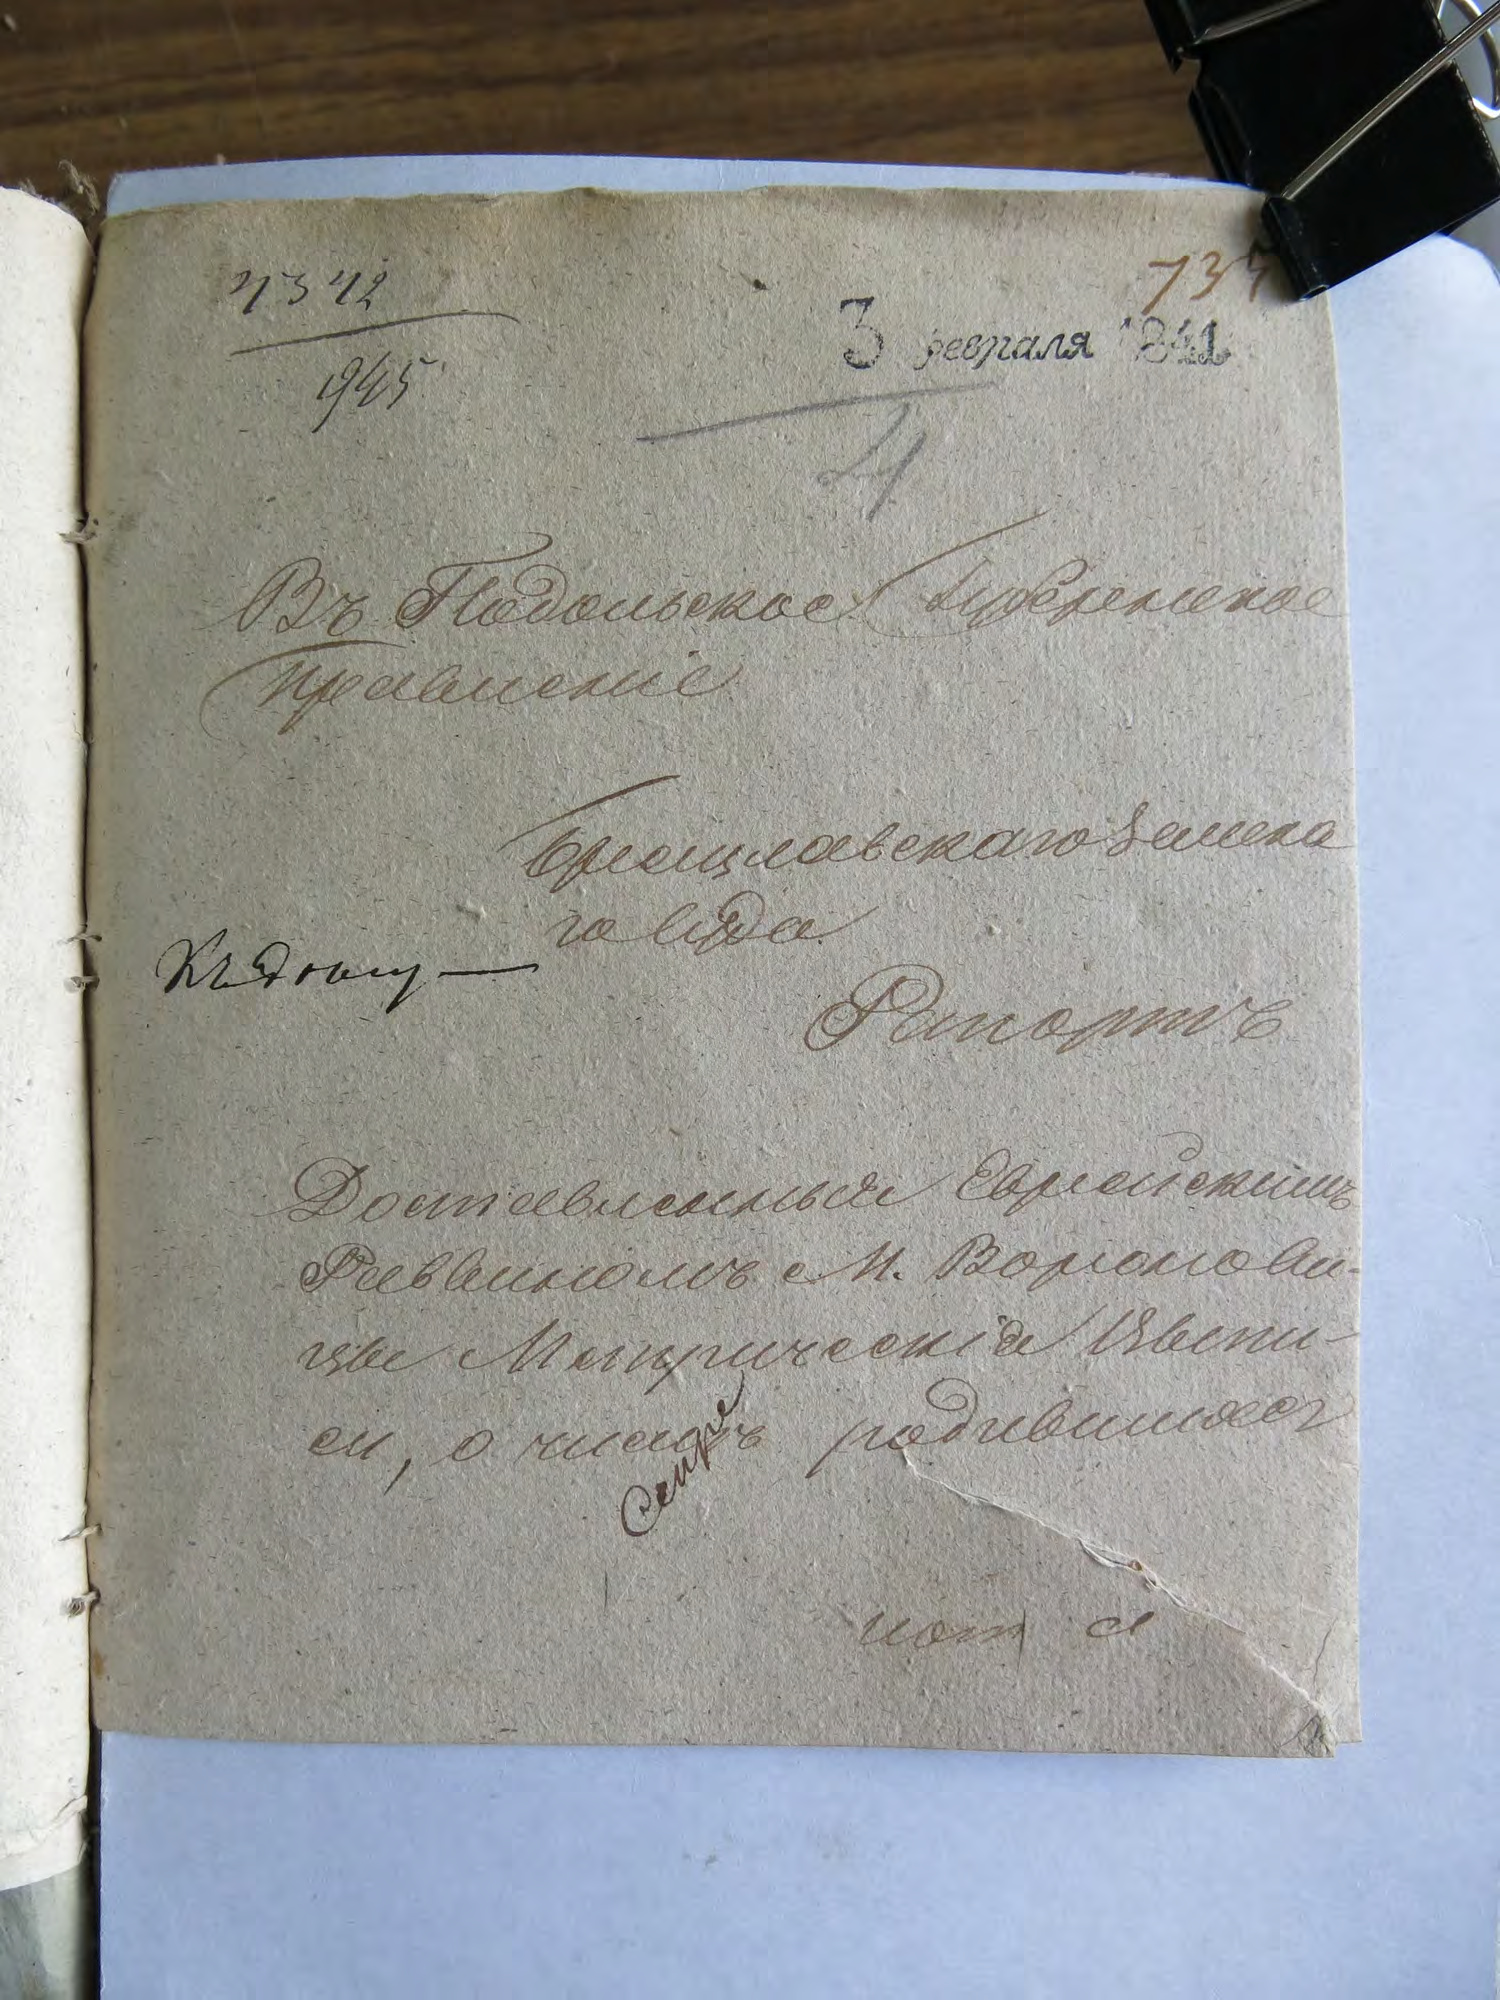 4342
945
735
3 февраля 1841
4
Въ Подольское Губернское
Правленіе
Брацлавскаго Земска
го Суда
Къ Дѣлу
Рапортъ
Доставленныя Еврейскимъ
Раввиномъ м. Воронови-
цы Метрическія Свѣти-
си, о числѣ родившихся